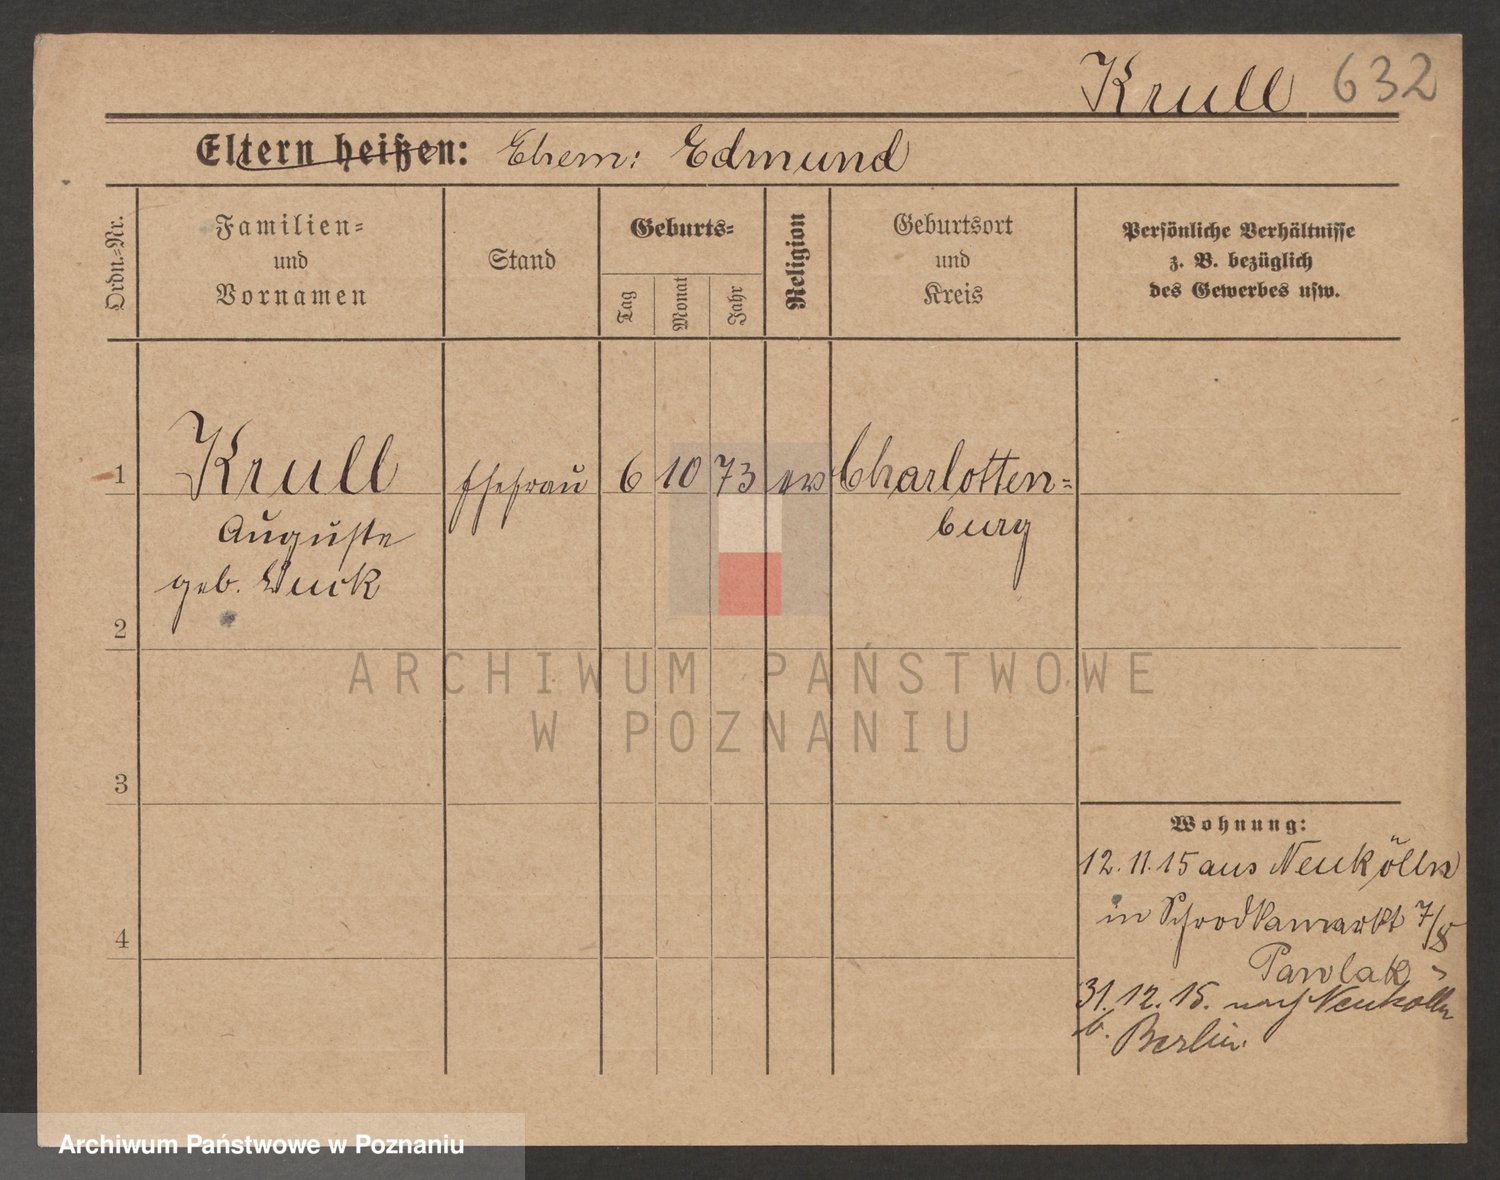 Krull 632
Eltern heißen: Ehem: Edmund
Ordn=Nr.
Familien=
und
Vornamen
Stand
Geburts=
Tag
Monat
Jahr
Religion
Geburtsort
und
Kreis
Persönliche Verhältnisse
z. B. bezüglich
des Gewerbes usw.
1 Krull Ehefrau 6 10 73 ev Charlotten=
burg
Auguste
geb.
2
3
4
Wohnung:
12. 11. 15 aus Neukölln
in Schrodkamarkt 7/8
Pawlak
31. 12. 15. nach Neukölln
b. Berlin.
ARCHIWUM PAŃSTWOWE
W POZNANIU
Archiwum Państwowe w Poznaniu